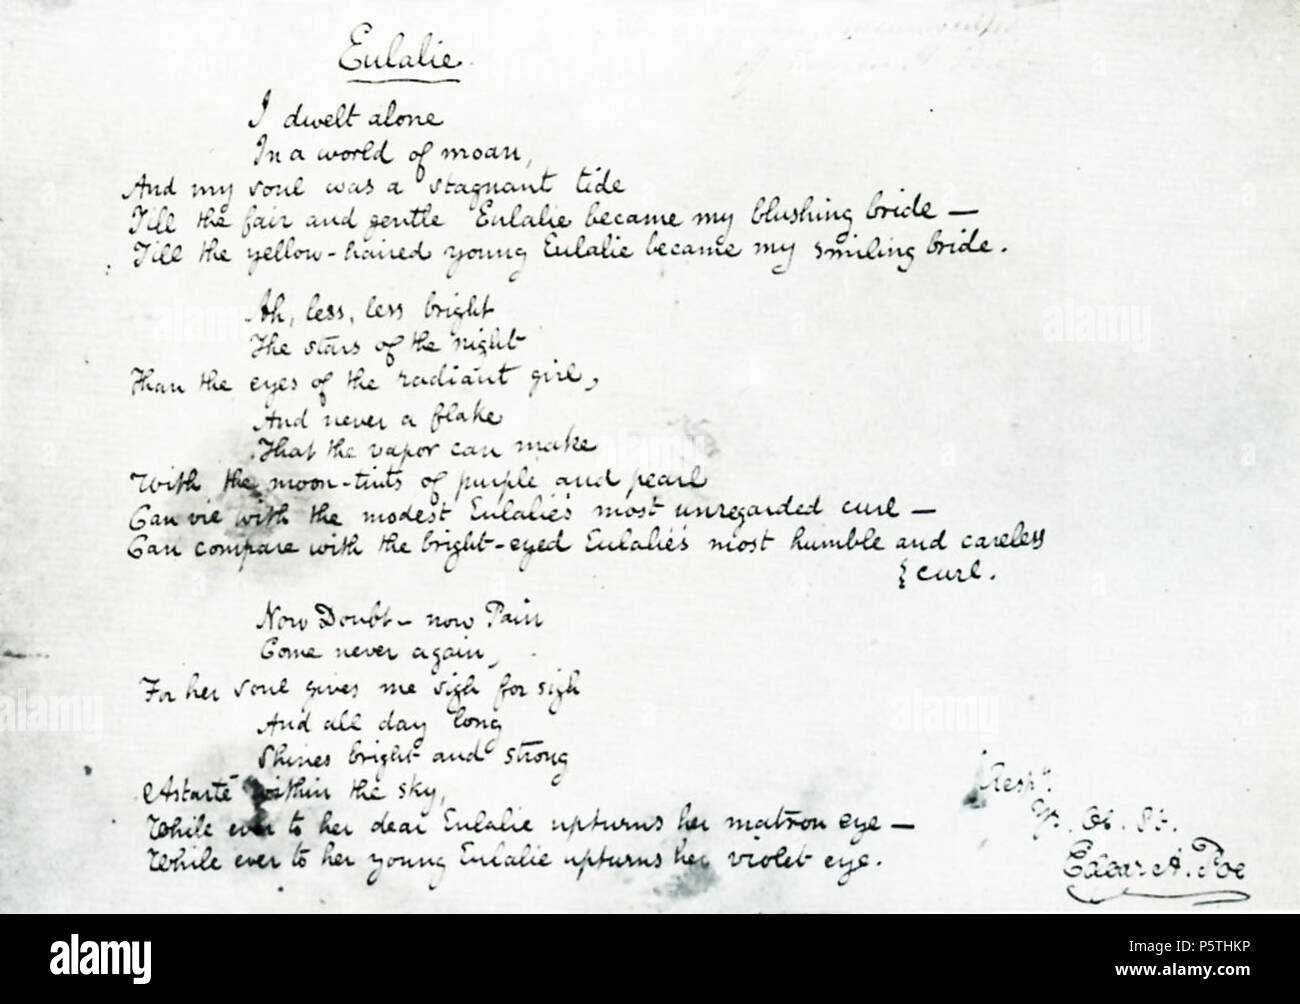 Eulalie.
I dwelt alone
In a world of moan,
And my soul was a stagnant tide
Till the fair and gentle Eulalie became my blushing bride —
Till the yellow-haired young Eulalie became my smiling bride.
Ah, less, less bright
The stars of the night
Than the eyes of the radiant girl,
And never a flake
That the vapor can make
With the moon-tints of purple and pearl
Can vie with the modest Eulalie's most unregarded curl —
Can compare with the bright-eyed Eulalie's most humble and careless
{ curl.
Now Doubt — now Pain
Come never again,
For her soul gives me sigh for sigh
And all day long
Shines bright and strong
Astarté within the sky,
While ever to her dear Eulalie upturns her matron eye —
While ever to her young Eulalie upturns her violet eye.
Respy.
Yr. Ob. St.
Edgar A. Poe
alamy
Image ID: P5THKP
www.alamy.com